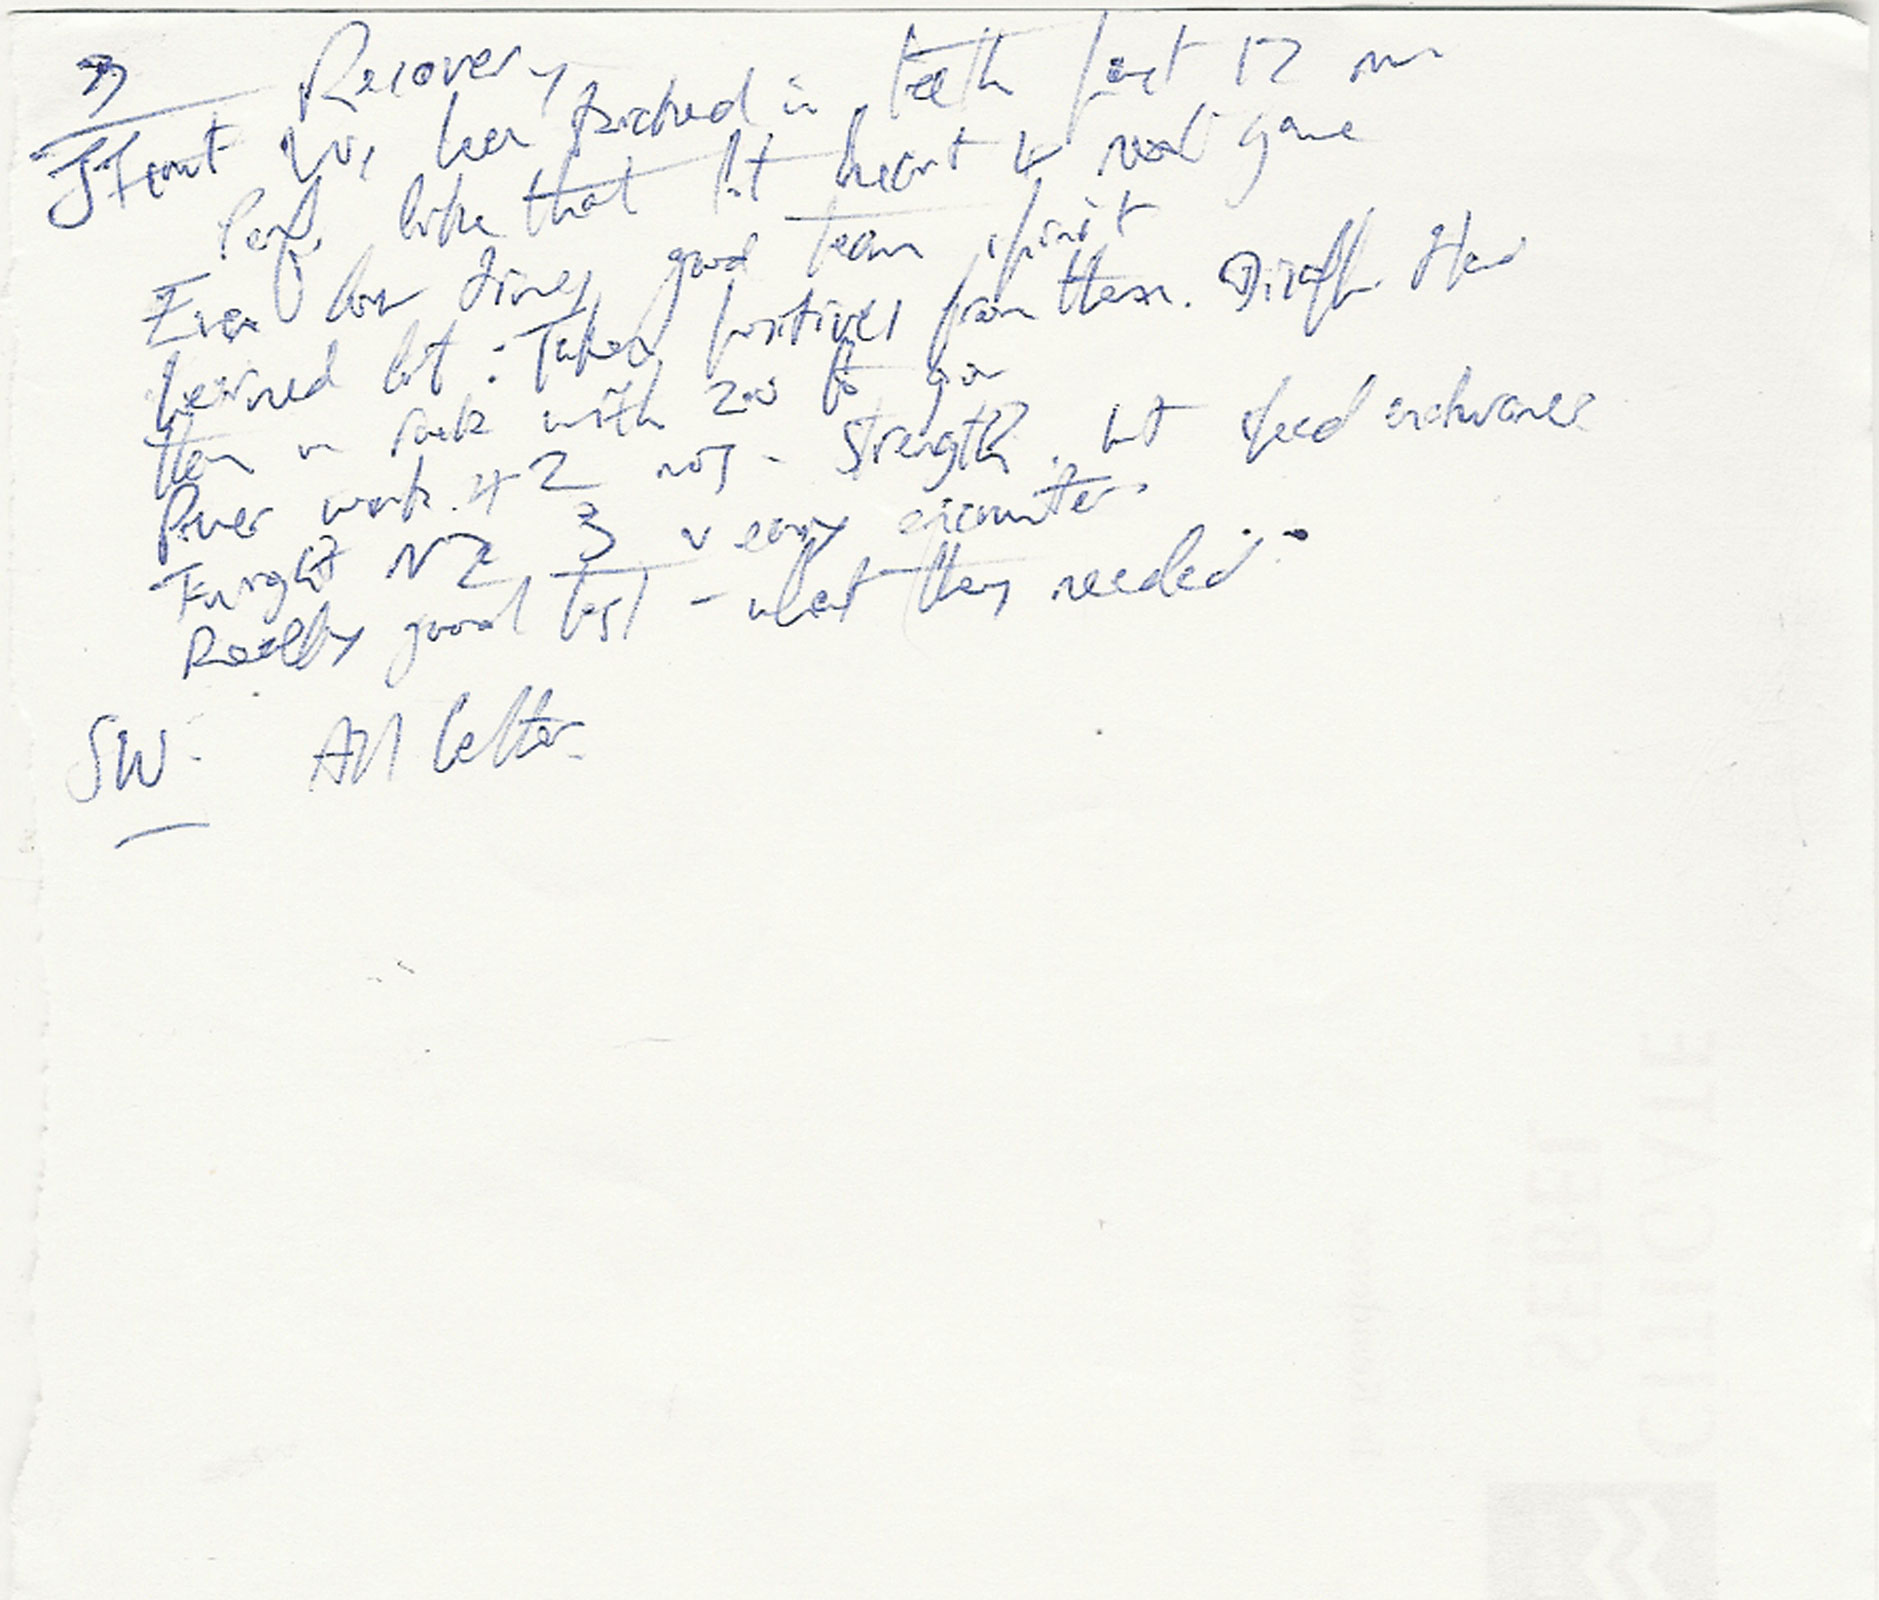 3 Recovery
We've been kicked in teeth last 12 mn
Perf. like that put heart 4 next game
Even low times good team spirit
Learned lot: Taken positives from them.
them in sack with 200 to go
Power work. 42 not - Strength, but speed endurance
Fought NZ 3 v easy encounter
Really good test - what they needed.
SW. All better.